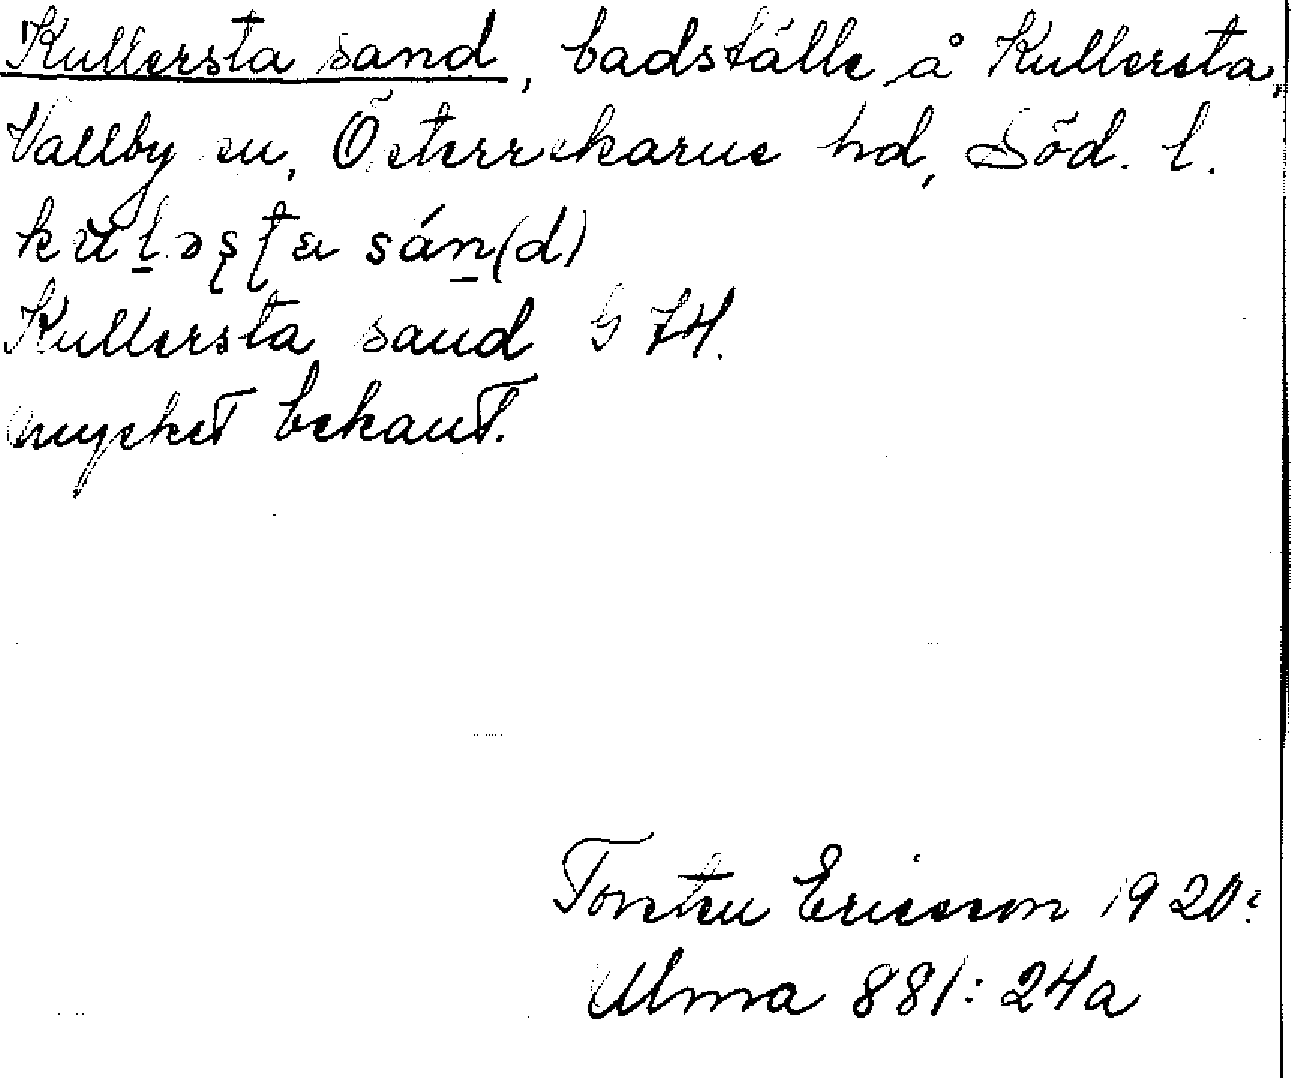 Kullersta sand, badställe å Kullersta,
Vallby sn, Österrekarne hd, Söd. l.
sán(d)
Kullersta sand G 74.
mycket bekant.
Torsten Ericsson 1920
Ulma 881:24a